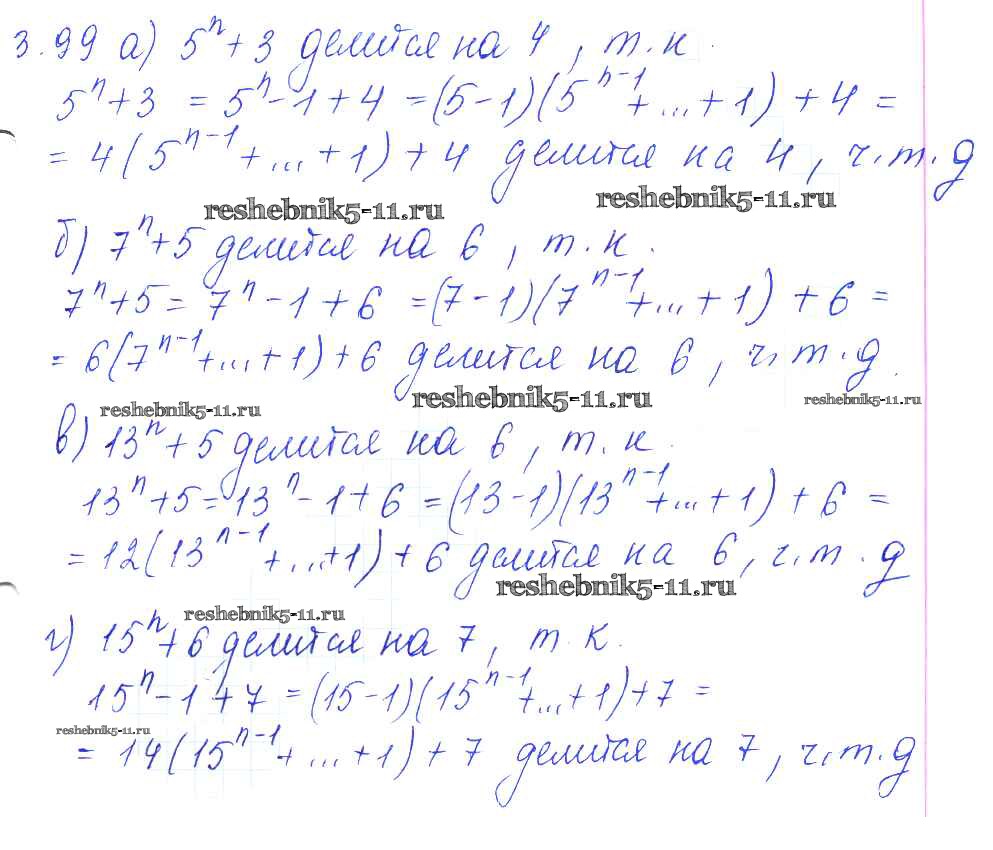 3.99 а) 5ⁿ + 3 делится на 4, т.к.
5ⁿ + 3 = 5ⁿ - 1 + 4 = (5 - 1)(5ⁿ⁻¹ + ... + 1) + 4 =
= 4(5ⁿ⁻¹ + ... + 1) + 4 делится на 4, ч.т.д
reshebnik5-11.ru reshebnik5-11.ru
б) 7ⁿ + 5 делится на 6, т.к.
7ⁿ + 5 = 7ⁿ - 1 + 6 = (7 - 1)(7ⁿ⁻¹ + ... + 1) + 6 =
= 6(7ⁿ⁻¹ + ... + 1) + 6 делится на 6, ч.т.д.
reshebnik5-11.ru reshebnik5-11.ru reshebnik5-11.ru
в) 13ⁿ + 5 делится на 6, т.к.
13ⁿ + 5 = 13ⁿ - 1 + 6 = (13 - 1)(13ⁿ⁻¹ + ... + 1) + 6 =
= 12(13ⁿ⁻¹ + ... + 1) + 6 делится на 6, ч.т.д
reshebnik5-11.ru
reshebnik5-11.ru
г) 15ⁿ + 6 делится на 7, т.к.
15ⁿ - 1 + 7 = (15 - 1)(15ⁿ⁻¹ + ... + 1) + 7 =
reshebnik5-11.ru
= 14(15ⁿ⁻¹ + ... + 1) + 7 делится на 7, ч.т.д